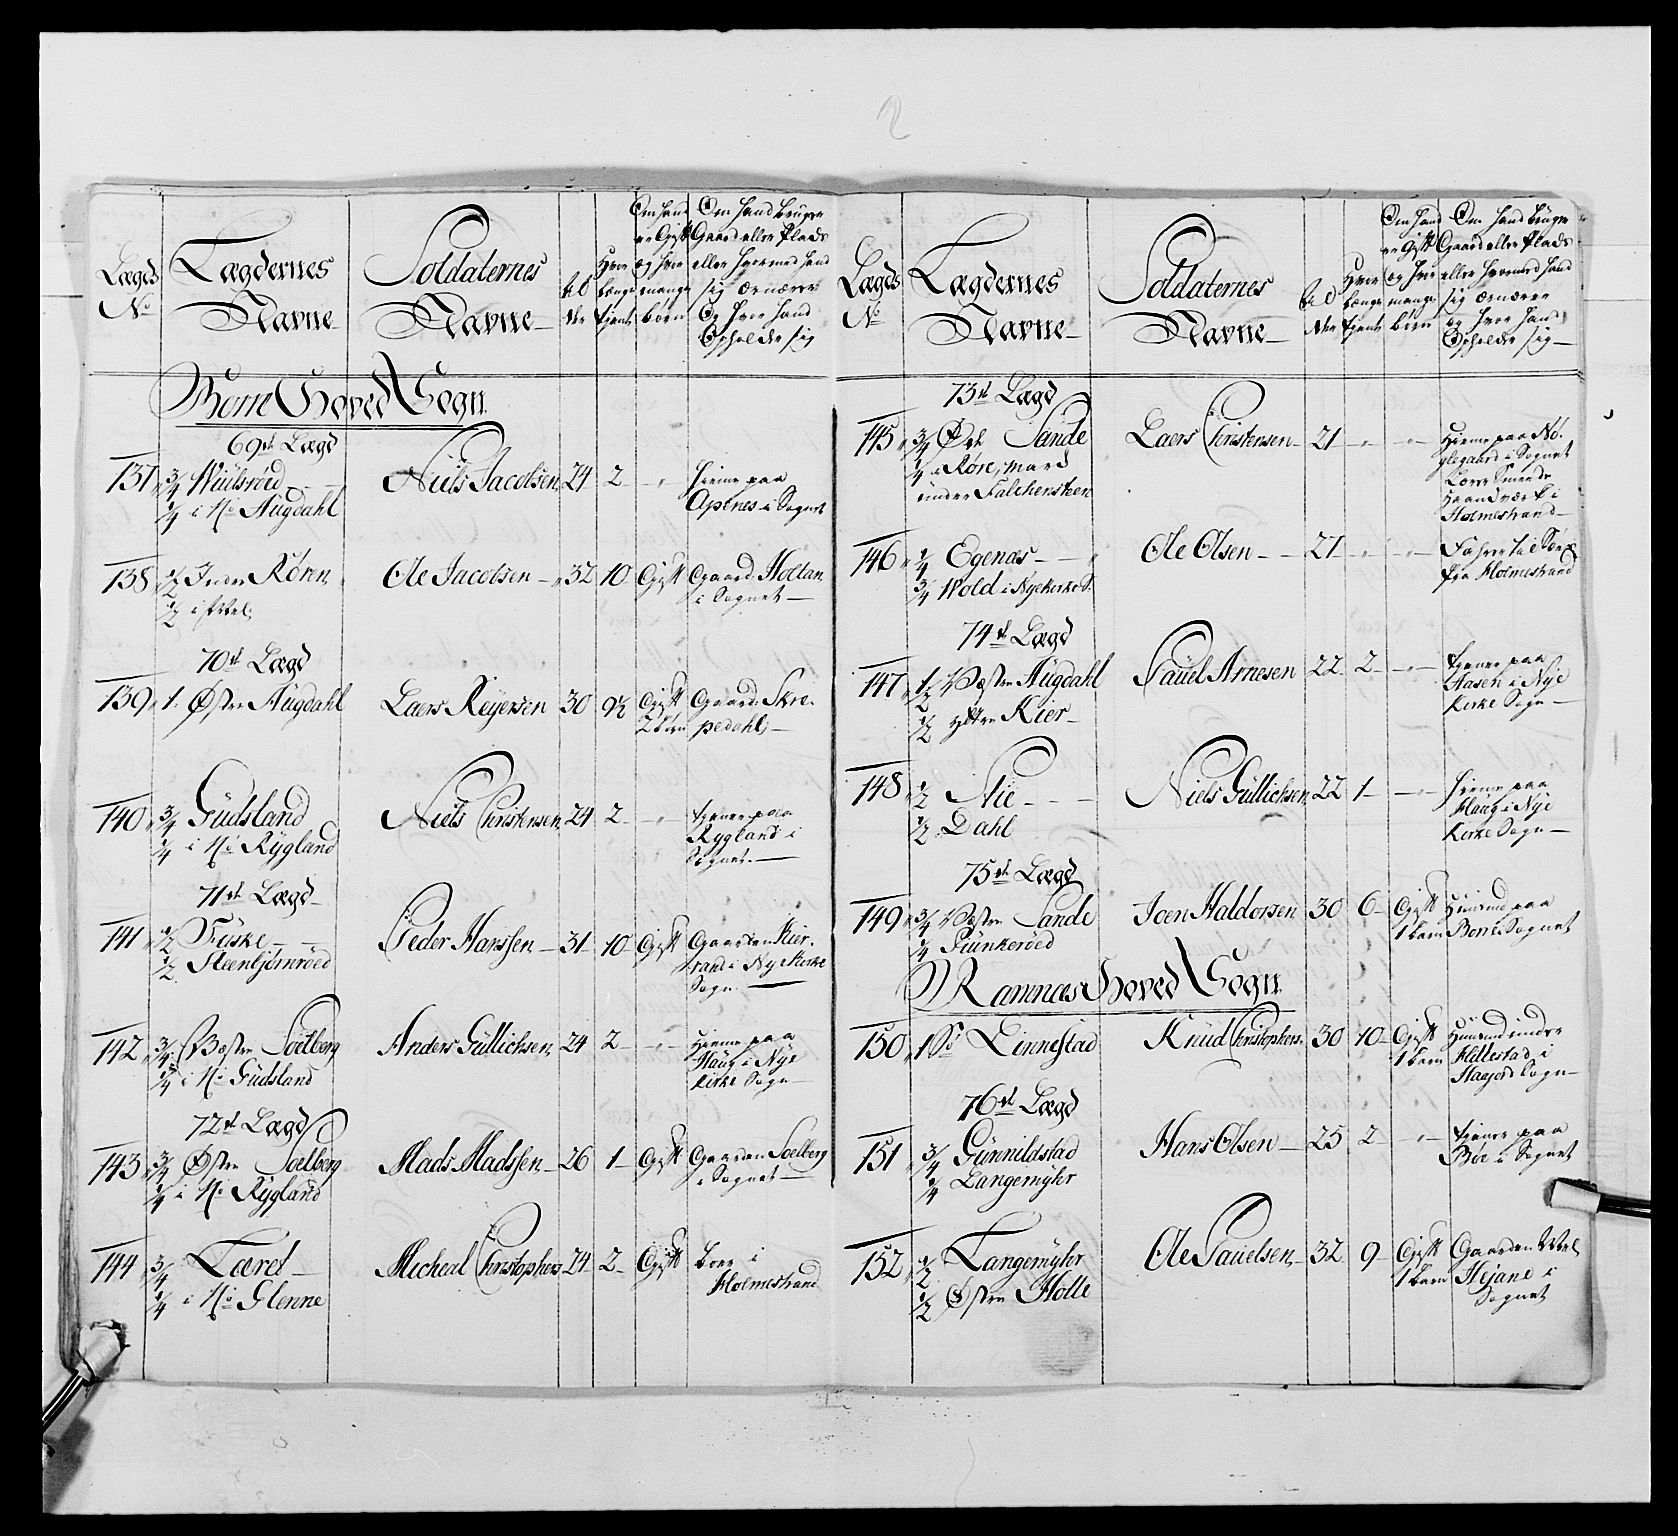 2
Lægds No
Lægdernes Navne
Soldaternes Navne
Alder
Hvor længe tient
Om hand er Gift og hvor mange børn
Om hand bruger Gaard eller Plads eller hvormed hand sig ernærer og hvor hand opholder sig
Borre Hoved Sogn
69de Lægd
137 3/4 Wülsrøed
1/4 i No Augdahl
Niels Jacobsen 24 2 - hiemme paa Apenes i Sognet
138 1/2 Indre Røren
1/2 i
Ole Jacobsen 32 10 Gift Gaard Holtan i Sognet
70de Lægd
139 1 Østre Augdahl
Laers Reyersen 30 9½ Gift 2 børn Gaard Skrepedahl
140 3/4 Gudsland
1/4 i No Rÿgland
Niels Christensen 24 2 - tiener paa Rygland i Sognet
71de Lægd
141 1/2 Fuske
1/2 Steenbjørnrøed
Peder Hanssen 31 10 Gift Gaarden Kierrand i Nye Kirke Sogn
142 3/4 Wæstre Soelberg
1/4 i No Gudsland
Anders Gullichsen 24 2 - hiemme paa Haug i Nye Kirke Sogn
72de Lægd
143 3/4 Østre Soelberg
1/4 i No Rygland
Mads Madssen 26 1 Gift Gaarden Soelberg i Sognet
144 3/4 Læret
1/4 i No Glenne
Micheal Christophers: 24 2 Gift boer i Holmestrand
Lægds No
Lægdernes Navne
Soldaternes Navne
Alder
Hvor længe tient
Om hand er Gift og hvor mange børn
Om hand bruger Gaard eller Plads eller hvormed hand sig ernærer og hvor hand Opholder sig
73de Lægd
145 3/4 Øst Sande
1/4 i Røre, mard under Falchensteen
Laers Christensen 21 - - hiemme paa Nøglegaard i Sognet Lærer Smeede Haandværk i Holmestrand
146 1/4 Egenæs
3/4 Wold i Nyekirke S.
Ole Olsen 21 - - Farer til Søes fra Holmestrand
74de Lægd
147 1/2 Wæstre Augdahl
1/2 ytre Kier
Paüel Arnesen 22 2 - tiener paa Aasen i Nye Kirke Sogn
148 1/2 Nie
1/2 Dahl
Niels Gullichsen 22 1 - hiemme paa Haug i Nye Kirke Sogn
75de Lægd
149 3/4 Wæstre Sande
1/4 Fuinkerøed
Joen Haldorsen 30 6 Gift 1 barn Huusmd paa Borre Sognet
Ramnæs Hoved Sogn
150 1 So Linnestad
Knud Christophers: 30 10 Gift 1 barn Huusmd under Hillestad i Haagers Sogn
76de Lægd
151 3/4 Günnildstad
1/4 Langemÿhr
Hans Olsen 25 2 - tiener paa Bøe i Sognet
152 1/2 Langemÿhr
1/2 Østre Holte
Ole Pauelsen 32 9 Gift 1 barn Gaarden Hejane i Sognet